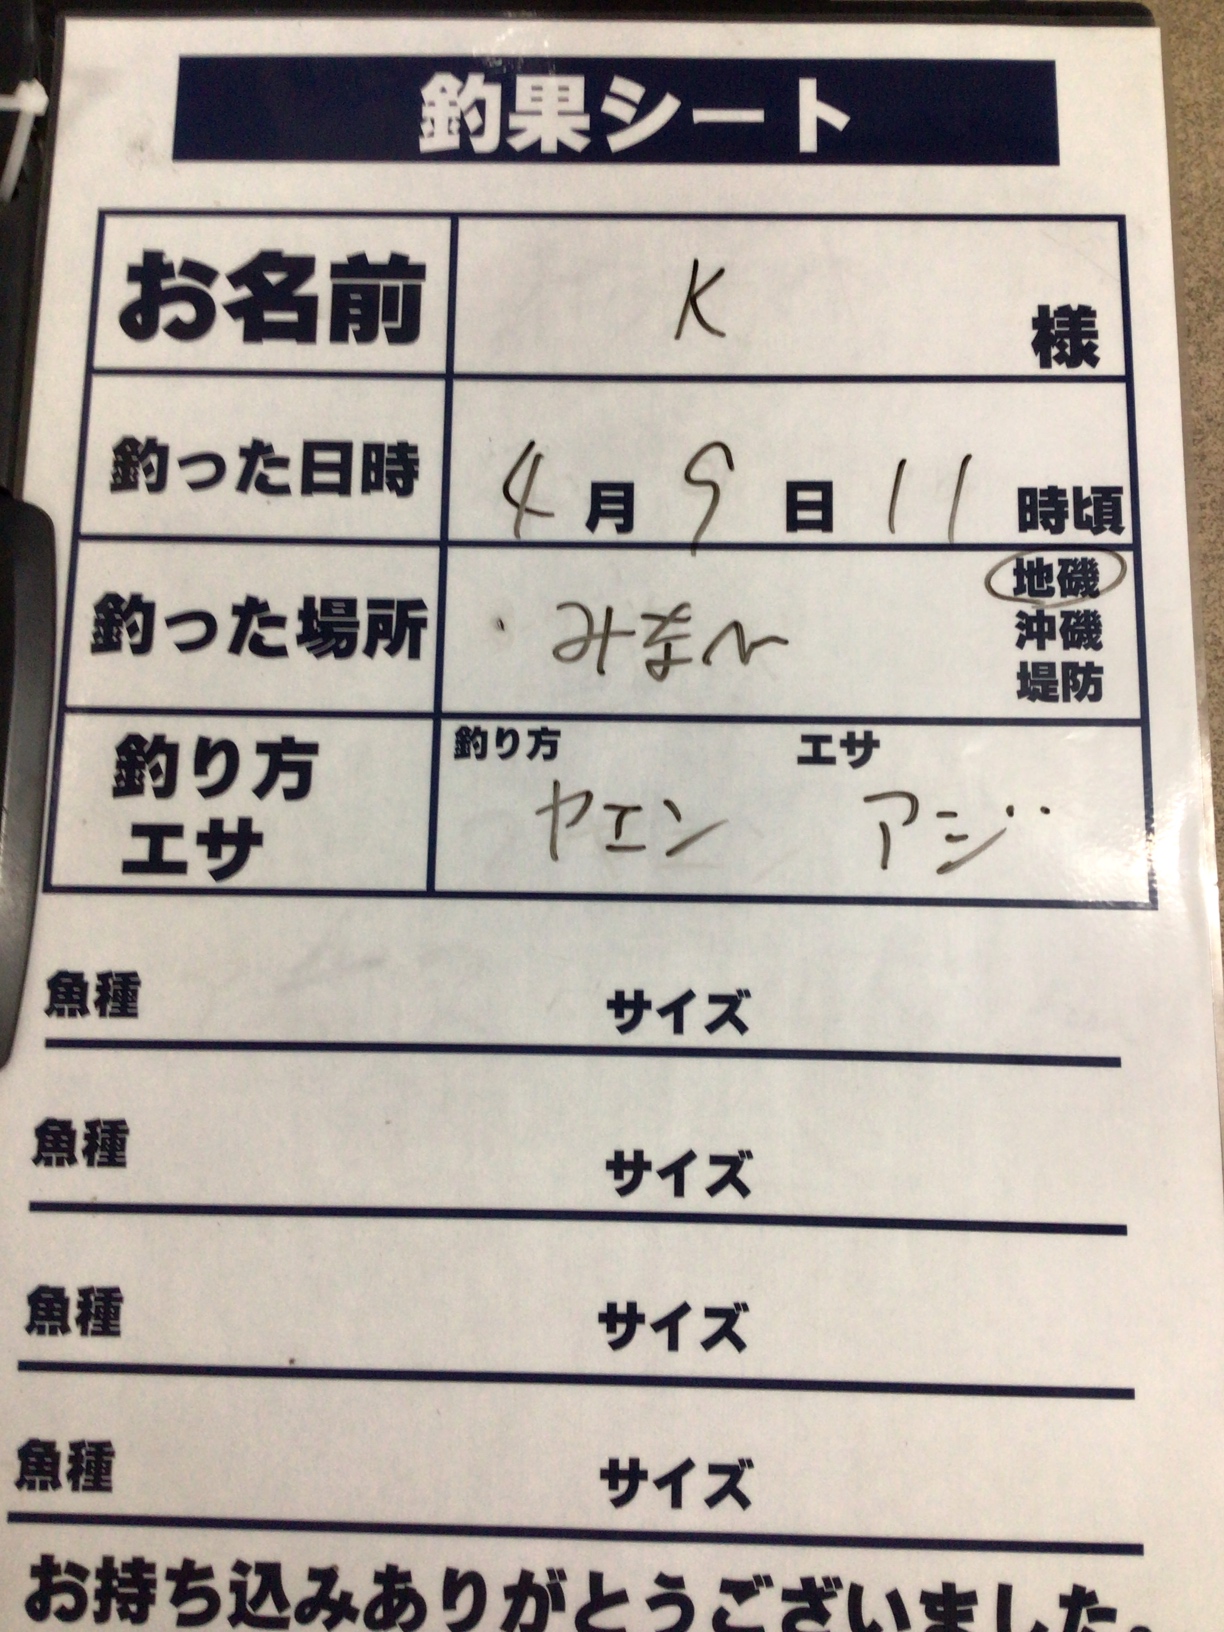 釣果シート
お名前 K 様
釣った日時 4月9日11時頃
釣った場所 地磯
沖磯
堤防
釣り方
エサ
釣り方 エサ
ヤエン アジ
魚種 サイズ
魚種 サイズ
魚種 サイズ
魚種 サイズ
お持ち込みありがとうございました。